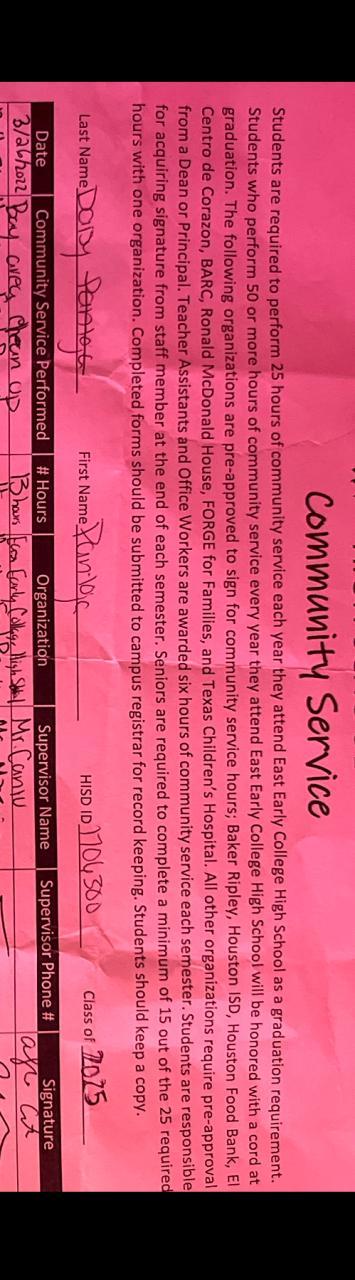 Community Service
Students are required to perform 25 hours of community service each year they attend East Early College High School as a graduation requirement.
Students who perform 50 or more hours of community service every year they attend East Early College High School will be honored with a cord at
graduation. The following organizations are pre-approved to sign for community service hours; Baker Ripley, Houston ISD, Houston Food Bank, El
Centro de Corazon, BARC, Ronald McDonald House, FORGE for Families, and Texas Children's Hospital. All other organizations require pre-approval
from a Dean or Principal. Teacher Assistants and Office Workers are awarded six hours of community service each semester. Students are responsible
for acquiring signature from staff member at the end of each semester. Seniors are required to complete a minimum of 15 out of the 25 required
hours with one organization. Completed forms should be submitted to campus registrar for record keeping. Students should keep a copy.
Last Name First Name HISD ID 1704300 Class of 2025
Date Community Service Performed # Hours Organization Supervisor Name Supervisor Phone # Signature
clean up hours Early College High Mr.